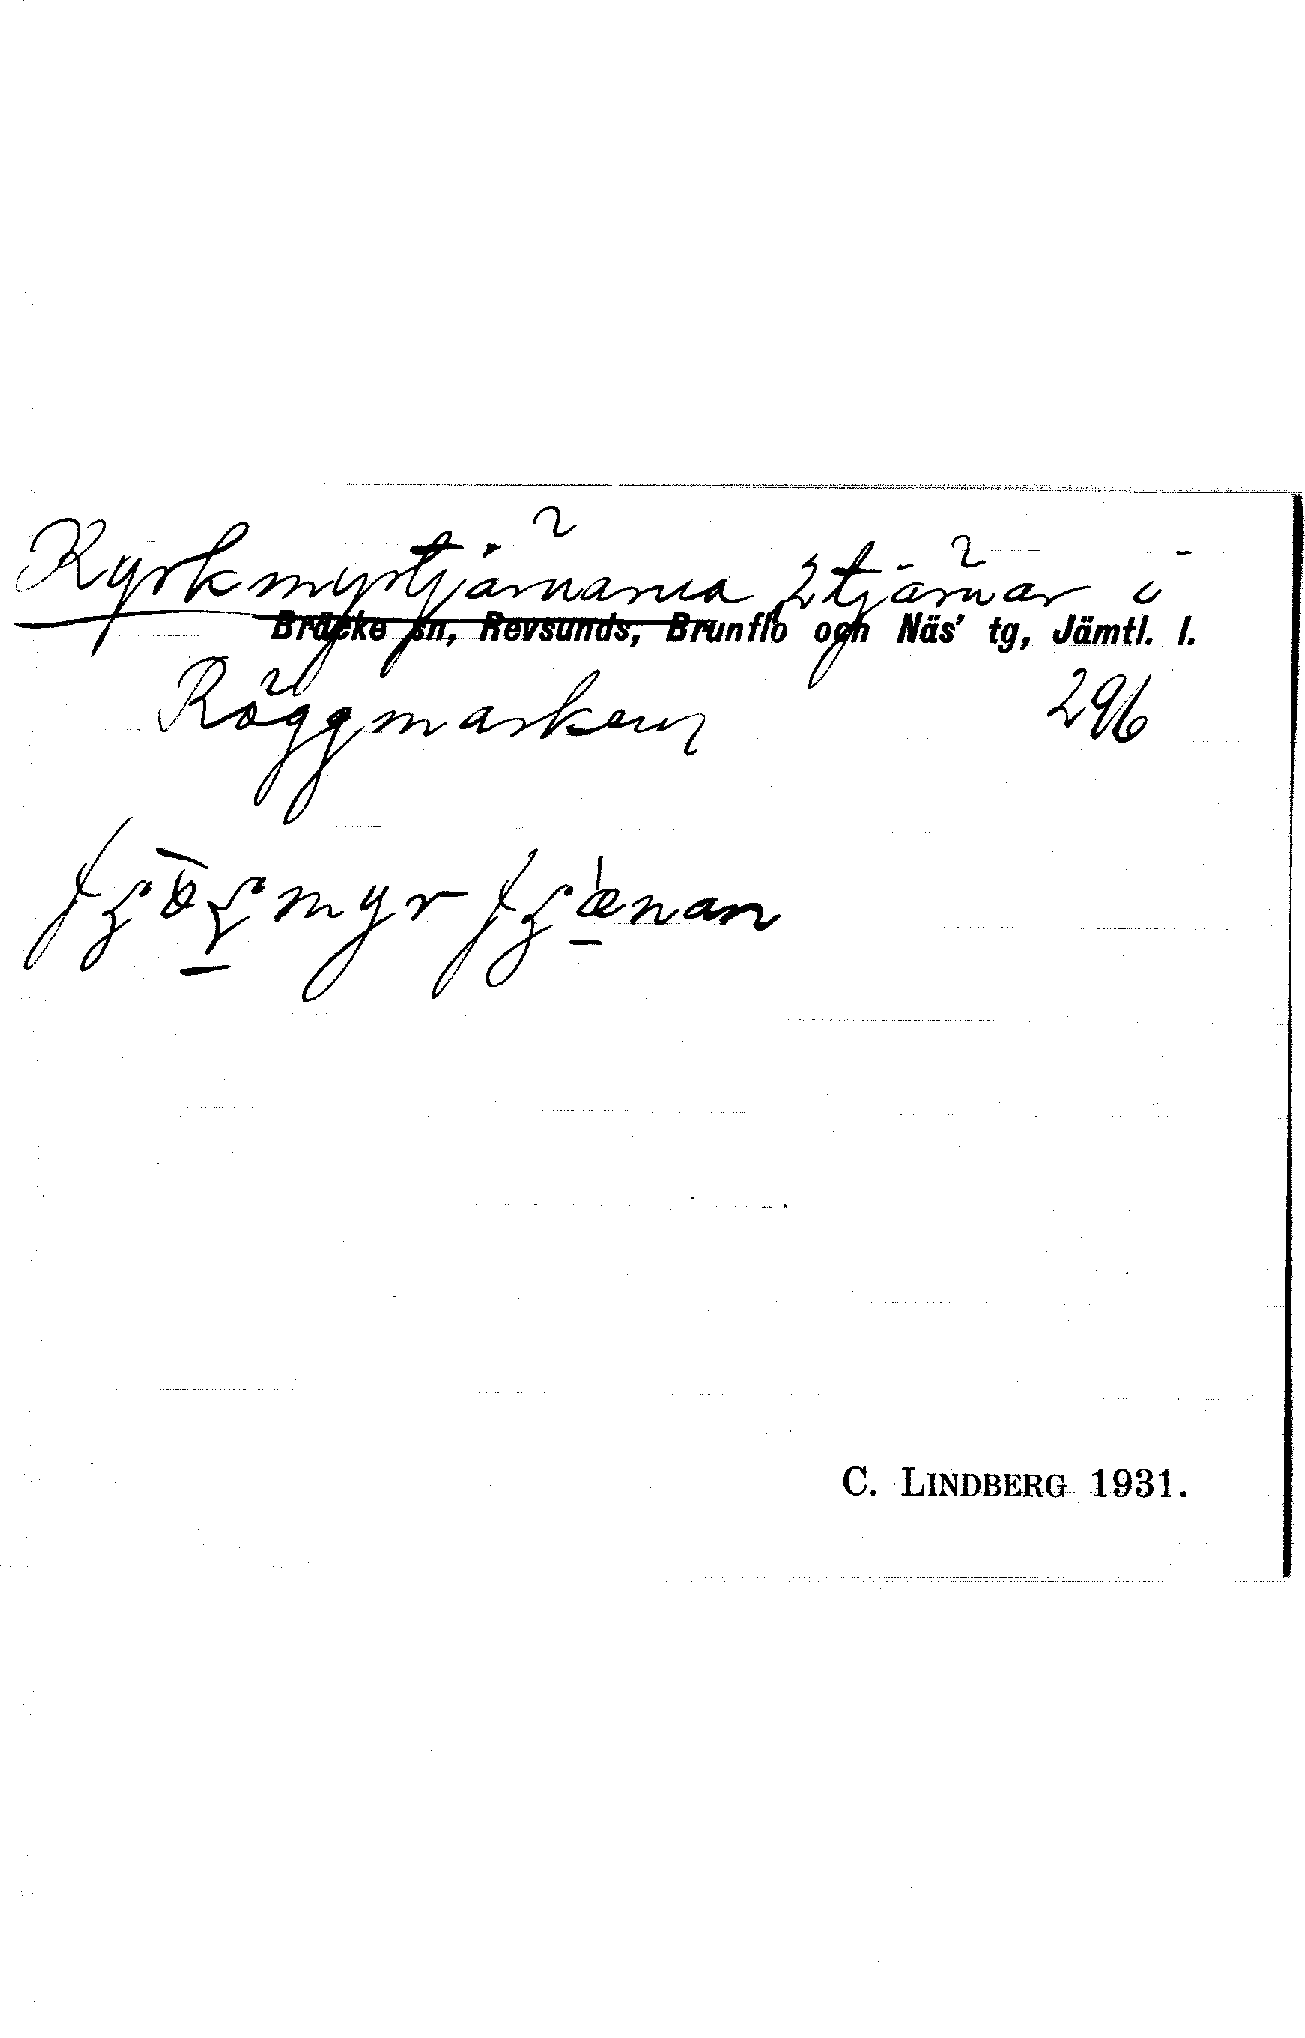 Kyrkmyrtjärnarna 2 tjärnar i
Bräcke sn, Revsunds, Brunflo och Näs' tg, Jämtl. l.
Röggmarken, 296
C. LINDBERG 1931.